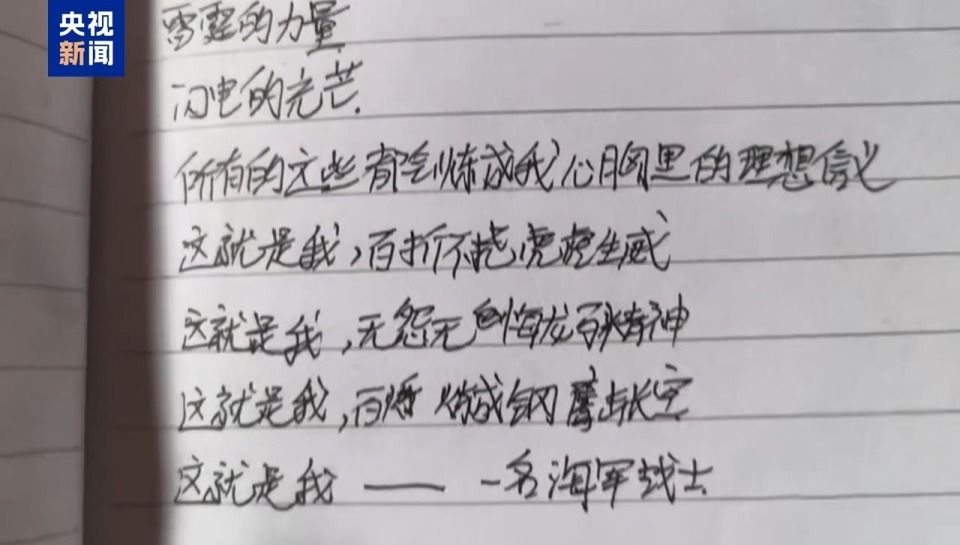 央视
新闻
雷霆的力量
闪电的光芒.
所有的这些都会炼成我心胸里的理想信义
这就是我,百折不挠虎虎生威
这就是我,无怨无悔龙马精神
这就是我,百炼成钢鹰击长空
这就是我 —— 一名海军战士